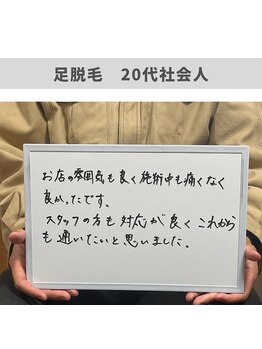 足脱毛　20代社会人
お店の雰囲気も良く施術中も痛くなく
良かったです。
スタッフの方も対応が良くこれから
も通いたいと思いました。